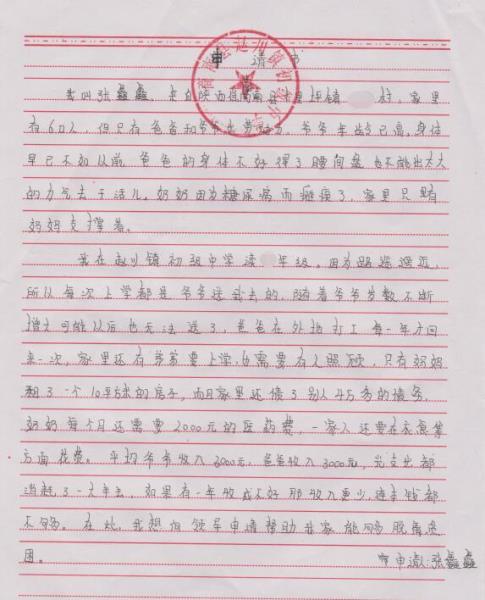 申请书
我叫张鑫鑫,是自陕西省商南县 坪镇 村,家里
有6口人,但只有爸爸和爷爷 劳动力,爷爷年龄已高,身体
早已不如从前,爸爸的身体不好得了腰间盘也不能出太大
的力气去干活儿,奶奶因为糖尿病而瘫痪了,家里只有
妈妈支撑着。
我在赵川镇初级中学读 年级。因为路途遥远,
所以每次上学都是爷爷送我去的,随着爷爷岁数不断
增大可能以后也无法送了,爸爸在外地打工每一年才回
来一次,家里还有弟弟要上学,也需要有人照顾,只有妈妈
租了一个10平米的房子,而且家里还借了别人4万多的债务,
奶奶每个月还需要2000元的医药费,一家人还要在衣食等
方面花费。平均爷爷收入 000元,爸爸收入3000元,光支出都
消耗了一大半去,如果有一年收成不好那收入更少,连本钱都
不够。在此,我想向领导申请帮助我家能够脱离贫
困。
申请人:张鑫鑫